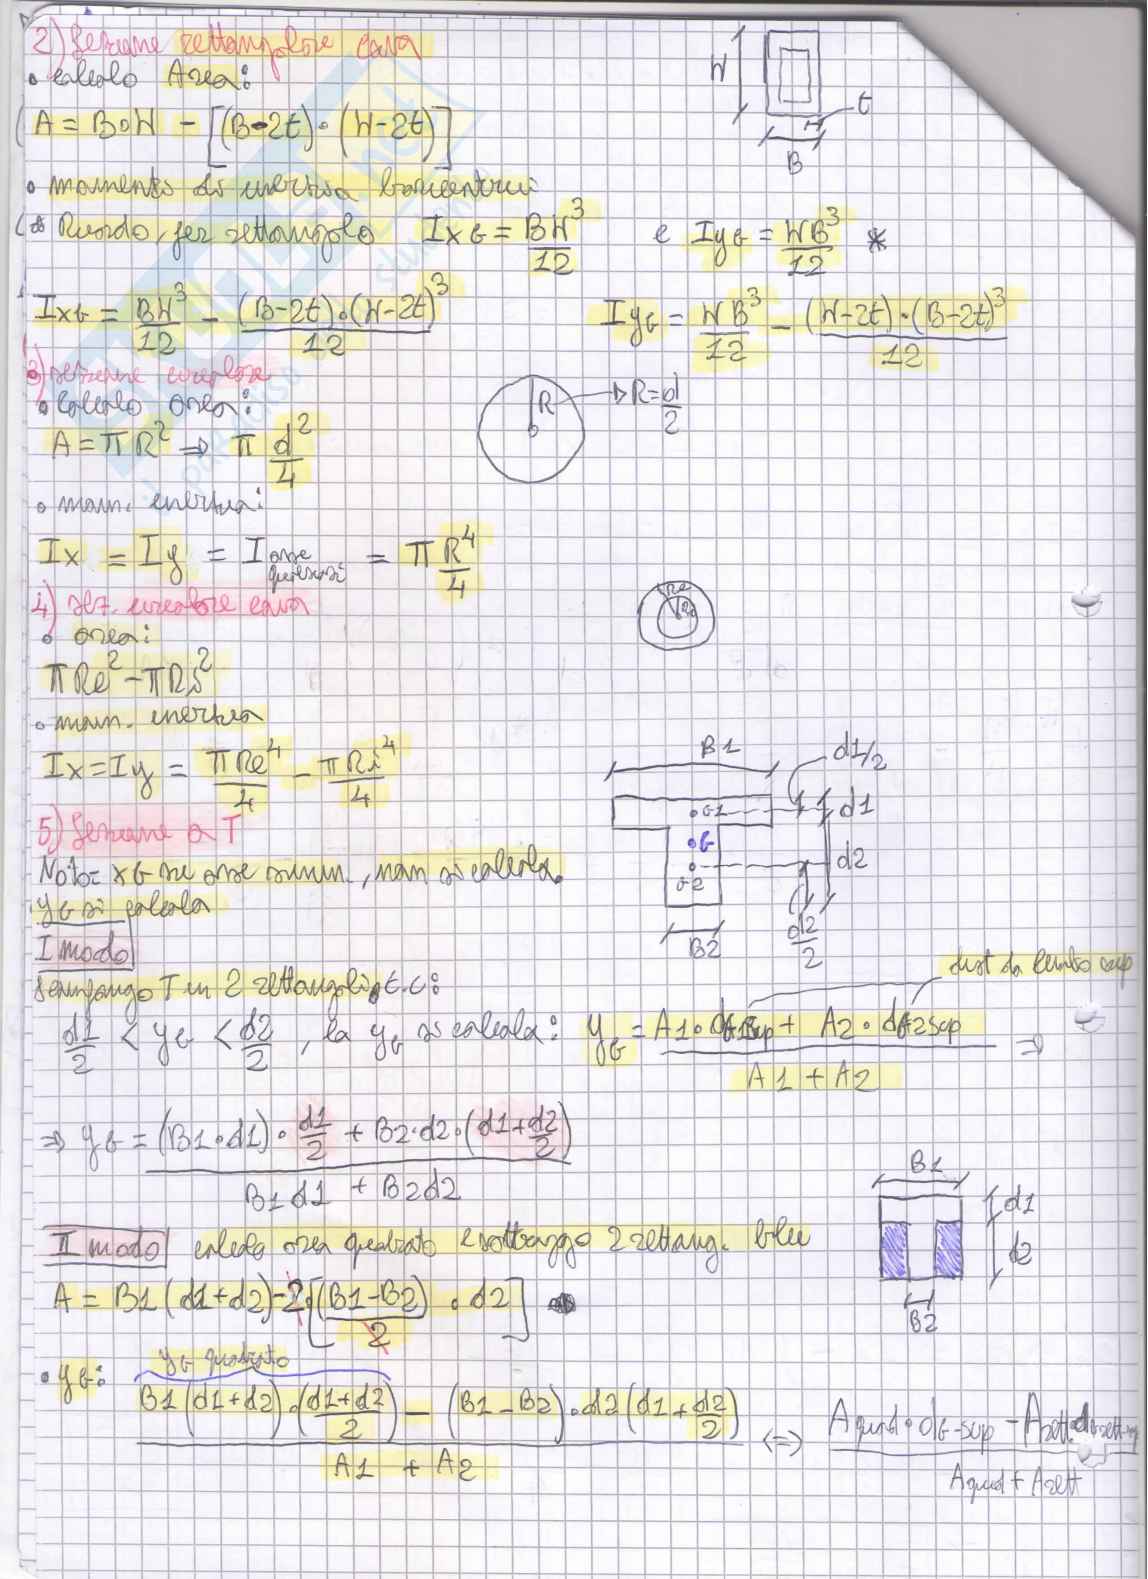 2) Sezione rettangolare cava
• calcolo Area:
A = B•W - [(B-2t)•(W-2t)]
W
t
B
• momento di inerzia baricentrici
(* Ricordo, per rettangolo IxG = BW³/12 e IyG = WB³/12 *
IxG = BW³/12 - (B-2t)•(W-2t)³/12 IyG = WB³/12 - (W-2t)•(B-2t)³/12
3) sezione circolare
• calcolo area:
R → R=d/2
A = πR² ⇒ π d²/4
• mom. inerzia:
Ix = Iy = I asse qualsiasi = π R⁴/4
4) sez. circolare cava
Re
Ri
• area:
πRe² - πRi²
• mom. inerzia
Ix = Iy = πRe⁴/4 - πRi⁴/4
B1
d1/2
G1
d1
G
d2
G2
B2
d2/2
5) Sezione a T
Nota= xG se asse simm., non si calcola.
yG si calcola
I modo
Scompongo T in 2 rettangoli, t.c:
dist da lembo sup
d1/2 < yG < d2/2, la yG si calcola: yG = A1•dG1sup + A2•dG2sup / A1 + A2 ⇒
⇒ yG = (B1•d1)•d1/2 + B2•d2•(d1+d2/2) / B1d1 + B2d2
B1
d1
d2
B2
II modo calcolo area quadrato e sottraggo 2 rettang. blu
A = B1(d1+d2)-2•[(B1-B2)/2 • d2]
yG quadrato
• yG: B1(d1+d2)•(d1+d2/2) - (B1-B2)•d2(d1+d2/2) / A1 + A2 <=> Aquad•dG-sup - Arett / Aquad + Arett